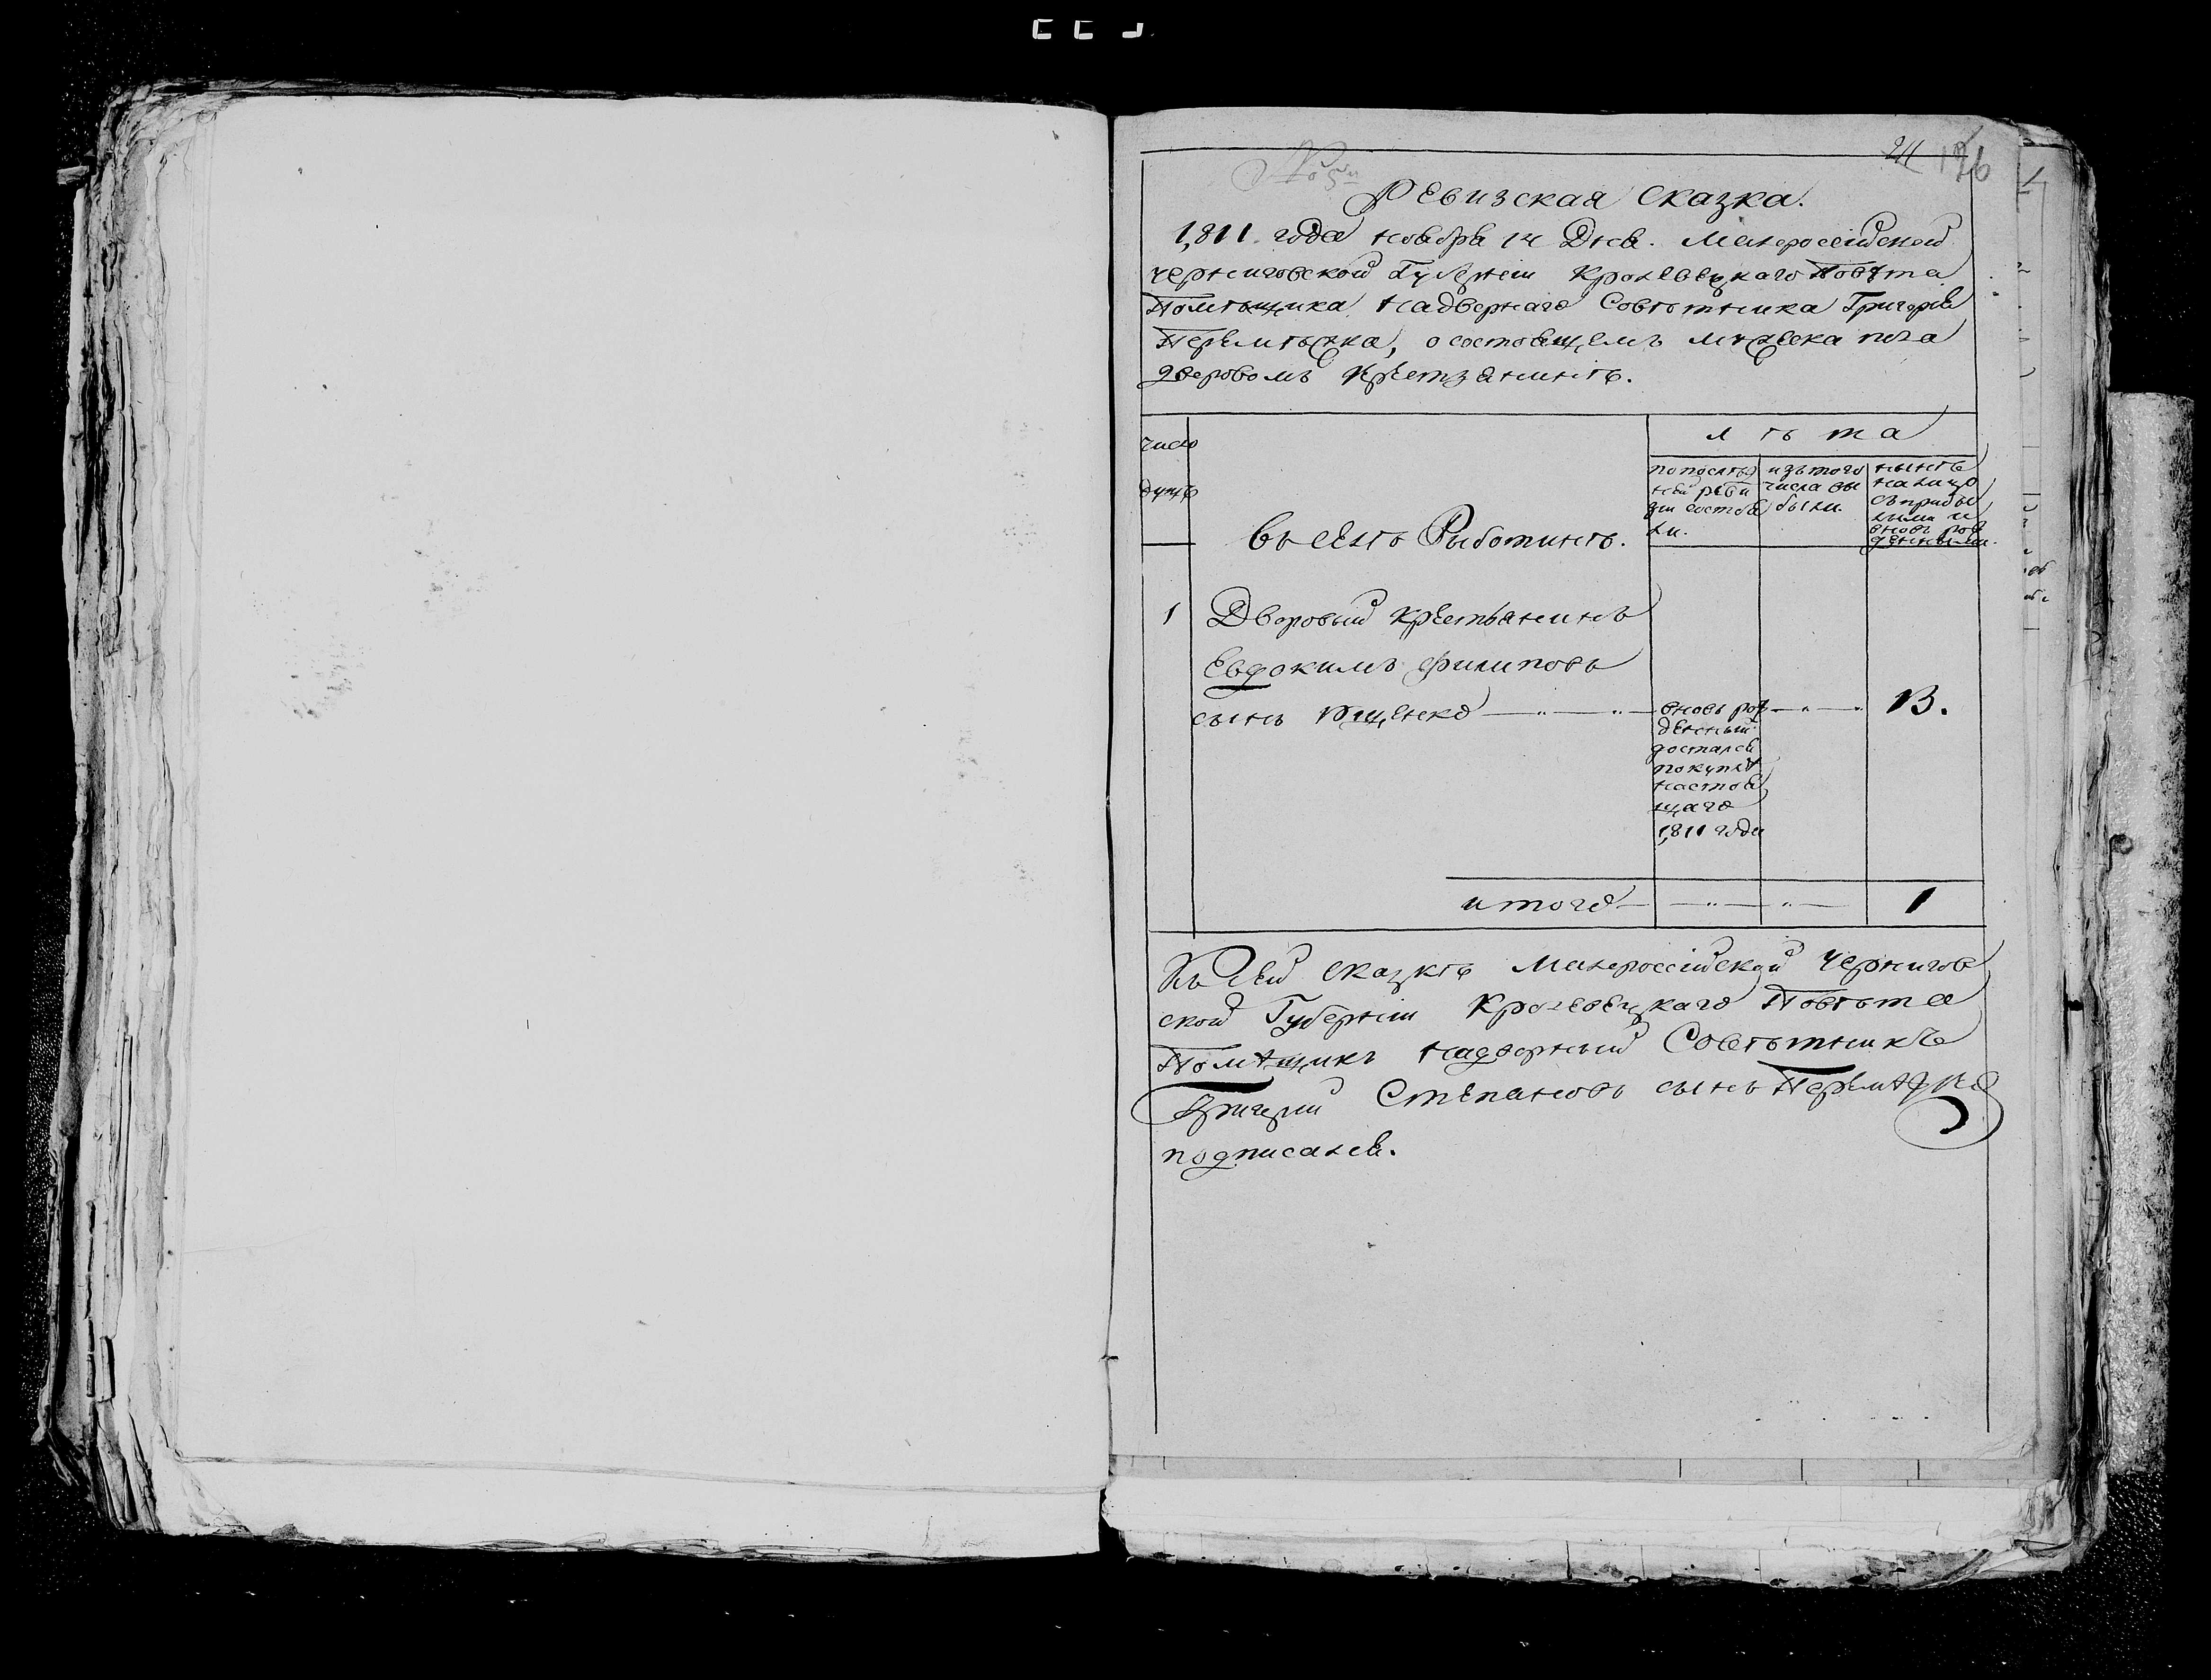 211 176
Ревизская сказка.
1,811 года ноября 14 Дня. Малороссійской
черниговской Губерніи Кролевецкаго Повѣта
Помѣщика Надворнаго Совѣтника Григорія
Перемѣжка, о состоящемъ мужеска пола
дворовомъ крестьянинѣ.
число
душъ
лѣта
въ селѣ Рыботинѣ.
по послѣд
ней реви
зіи состоя
ли.
изъ того
числа вы
были.
нынѣ
на лицо
съ прибы
лыми и
вновь рож
денными.
1 Дворовый крестьянинъ
Евдокимъ филиповъ
сынъ Ященко — „ — „ — вновь рож — „ — „ 13.
денный
достался
покупкѣ
настоя
щаго
1,811 года
итого — „ — „ — 1
Къ сей сказкѣ Малороссійской Чернигов
ской Губерніи Кролевецкаго Повѣта
Помѣщикъ надворный Совѣтникъ
Григорий Степановъ сынъ
подписался.